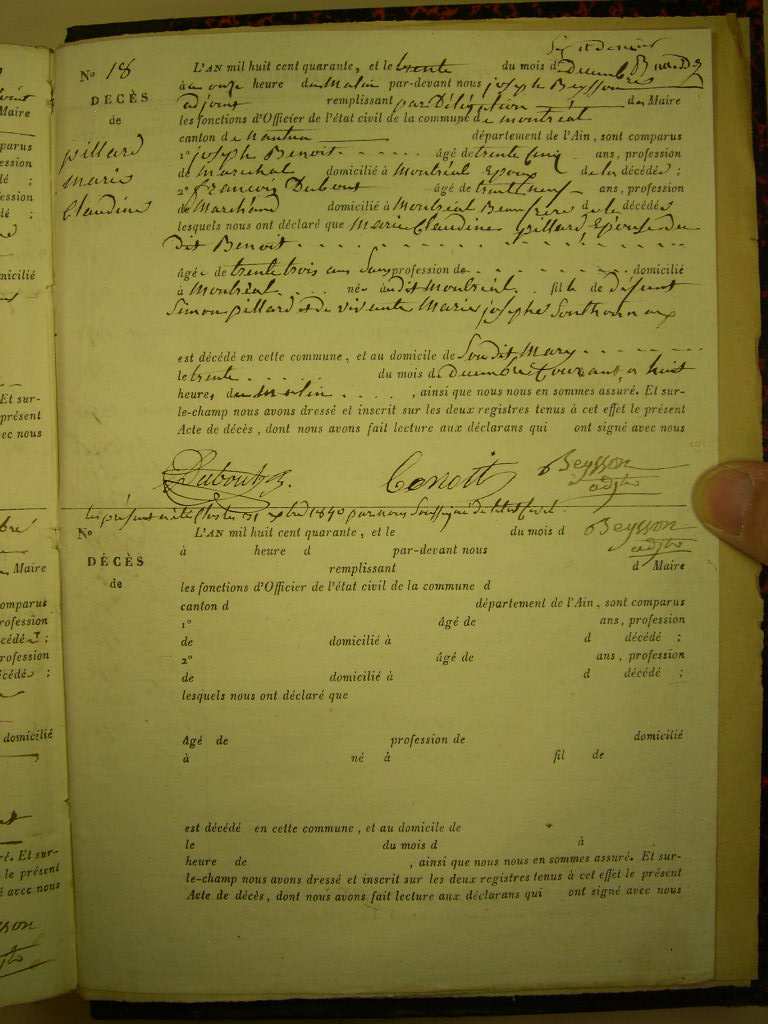 Six et dernier
No 18 L'AN mil huit cent quarante, et le trente du mois de Decembre
DÉCÈS à onze heure du Matin par-devant nous joseph Beysson
de adjoint remplissant par Délégation du Maire
les fonctions d'Officier de l'état civil de la commune de montréal
pillard canton de Nantua département de l'Ain, sont comparus
marie 1o joseph Benoit âgé de trente cinq ans, profession
Claudine de Marechal domicilié à Montréal Epoux de la décédée ;
2o francois Dubout âgé de trente neuf ans, profession
de Marchand domicilié à Montréal Beaufrere de la décédée
lesquels nous ont déclaré que Marie Claudine pillard Epouse du
dit Benoit
âgée de trente trois ans Sans profession de domicilié
à Montréal née audit Montréal fille de défunt
Simon pillard et de vivante Marie josephe
est décédé en cette commune, et au domicile de Son dit Mary
le trente du mois de decembre Courant, a huit
heures du matin, ainsi que nous nous en sommes assuré. Et sur-
le-champ nous avons dressé et inscrit sur les deux registres tenus à cet effet le présent
Acte de décès, dont nous avons fait lecture aux déclarans qui ont signé avec nous
Dubout Benoit Beysson
adjt
Le présent a été Clos le 31 xbre 1840 par nous Soussigné de letat Civil.
Beysson
adjt
No L'AN mil huit cent quarante, et le du mois d
DÉCÈS à heure d par-devant nous
de remplissant d Maire
les fonctions d'Officier de l'état civil de la commune d
canton d département de l'Ain, sont comparus
1o âgé de ans, profession
de domicilié à d décédé ;
2o âgé de ans, profession
de domicilié à d décédé ;
lesquels nous ont déclaré que
âgé de profession de domicilié
à né à fil de
est décédé en cette commune, et au domicile de
le du mois d à
heure de , ainsi que nous nous en sommes assuré. Et sur-
le-champ nous avons dressé et inscrit sur les deux registres tenus à cet effet le présent
Acte de décès, dont nous avons fait lecture aux déclarans qui ont signé avec nous